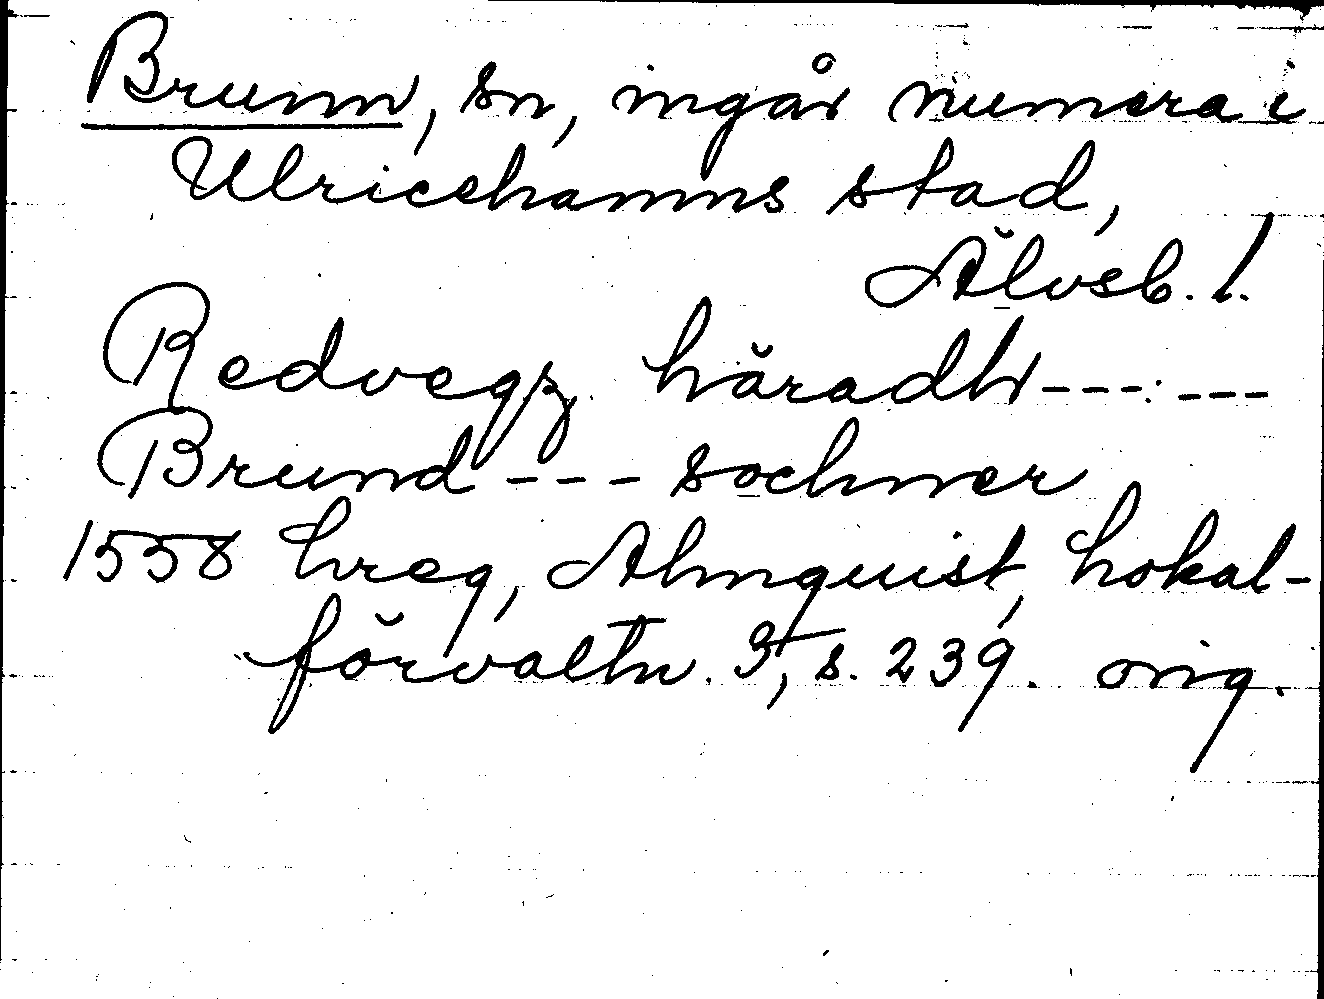 Brunn, sn, ingår numera i
Ulricehamns stad,
Älvsb. l.
Redvegz häradh --- ---
Brund --- sochner
1558 hreg, Almquist, Lokal-
förvaltn. 3, s. 239. orig.